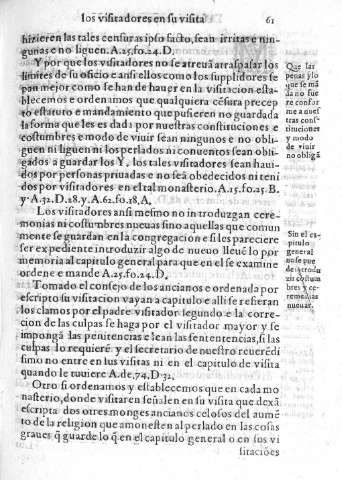 los visitadores en su visita 61
hizieren las tales censuras ipso facto, sean irritas e nin-
gunas e no liguen. A.25.fo.24.D.
Y por que los visitadores no se atreuã a traspasar los
limites de su oficio e ansi ellos como los supplidores se
pan mejor como se han de hauer en la visitacion esta-
blecemos e ordenamos que qualquiera cẽsura precep
to estatuto e mandamiento que pusieren no guardada
la forma que les es dada por nuestras constituciones e
costumbres e modo de viuir sean ningunos e no obli-
guen ni liguen ni los perlados ni conuentos sean obli-
gados a guardar los Y, los tales visitadores sean haui-
dos por personas priuadas e no seã obedecidos ni teni
dos por visitadores en el tal monasterio. A.15.fo.25.B.
y A.32.D.18.y.A.62.fo.18.A.
Los visitadores ansi mesmo no introduzgan cere-
monias ni costumbres nueuas sino aquellas que comun
mente se guardan en la congregacion e si les pareciere
ser expediente introduzir algo de nueuo lleuẽ lo por
memoria al capitulo general para que en el se examine
ordene e mande A.25.fo.24.D.
Tomado el consejo de los ancianos e ordenada por
escripto su visitacion vayan a capitulo e alli se refieran
los clamos por el padre visitador segundo e la corre-
cion de las culpas se haga por el visitador mayor y se
impongã las penitencias e lean las sentencias, si las
culpas lo requierẽ y el secretario de nuestro reuerẽdi
simo no entre en las visitas ni en el capitulo de visita
quando le tuuiere A.de,74,D 32,
Otro si ordenamos y establecemos que en cada mo
nasterio, donde visitaren señalen en su visita que dexã
escripta dos otres monges ancianos celosos del aumẽ
to de la religion que amonesten al perlado en las cosas
graues q̃ guarde lo q̃ en el capitulo general o en sus vi
sitaciões
Que las
penas y lo
que se mã
da no fue
re confor
me a nues
tras cons-
tituciones
y modo
de viuir
no obligã
Sin el ca-
pitulo
general
no se pue
de
ceremo-
nias
nueuas.